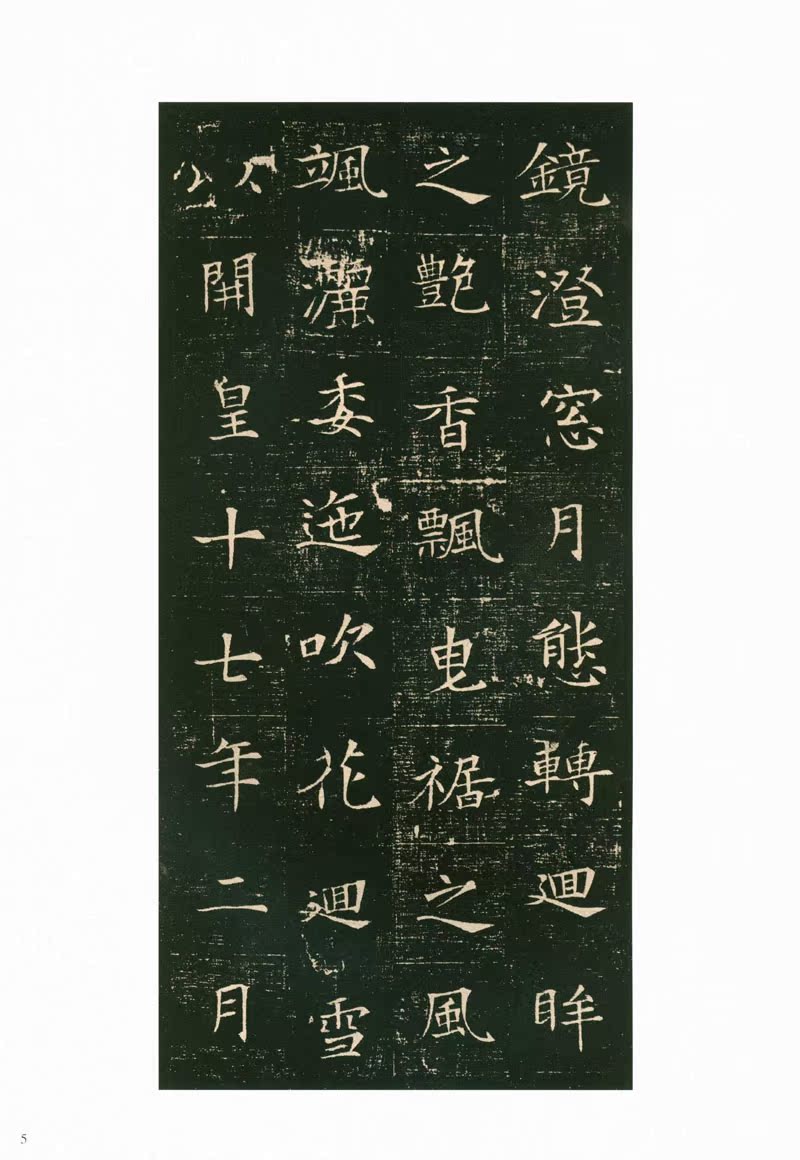 鏡澄窓月態轉迴眸
之艶香飄曳裾之風
颯灑委迤吹花迴雪
以開皇十七年二月
5